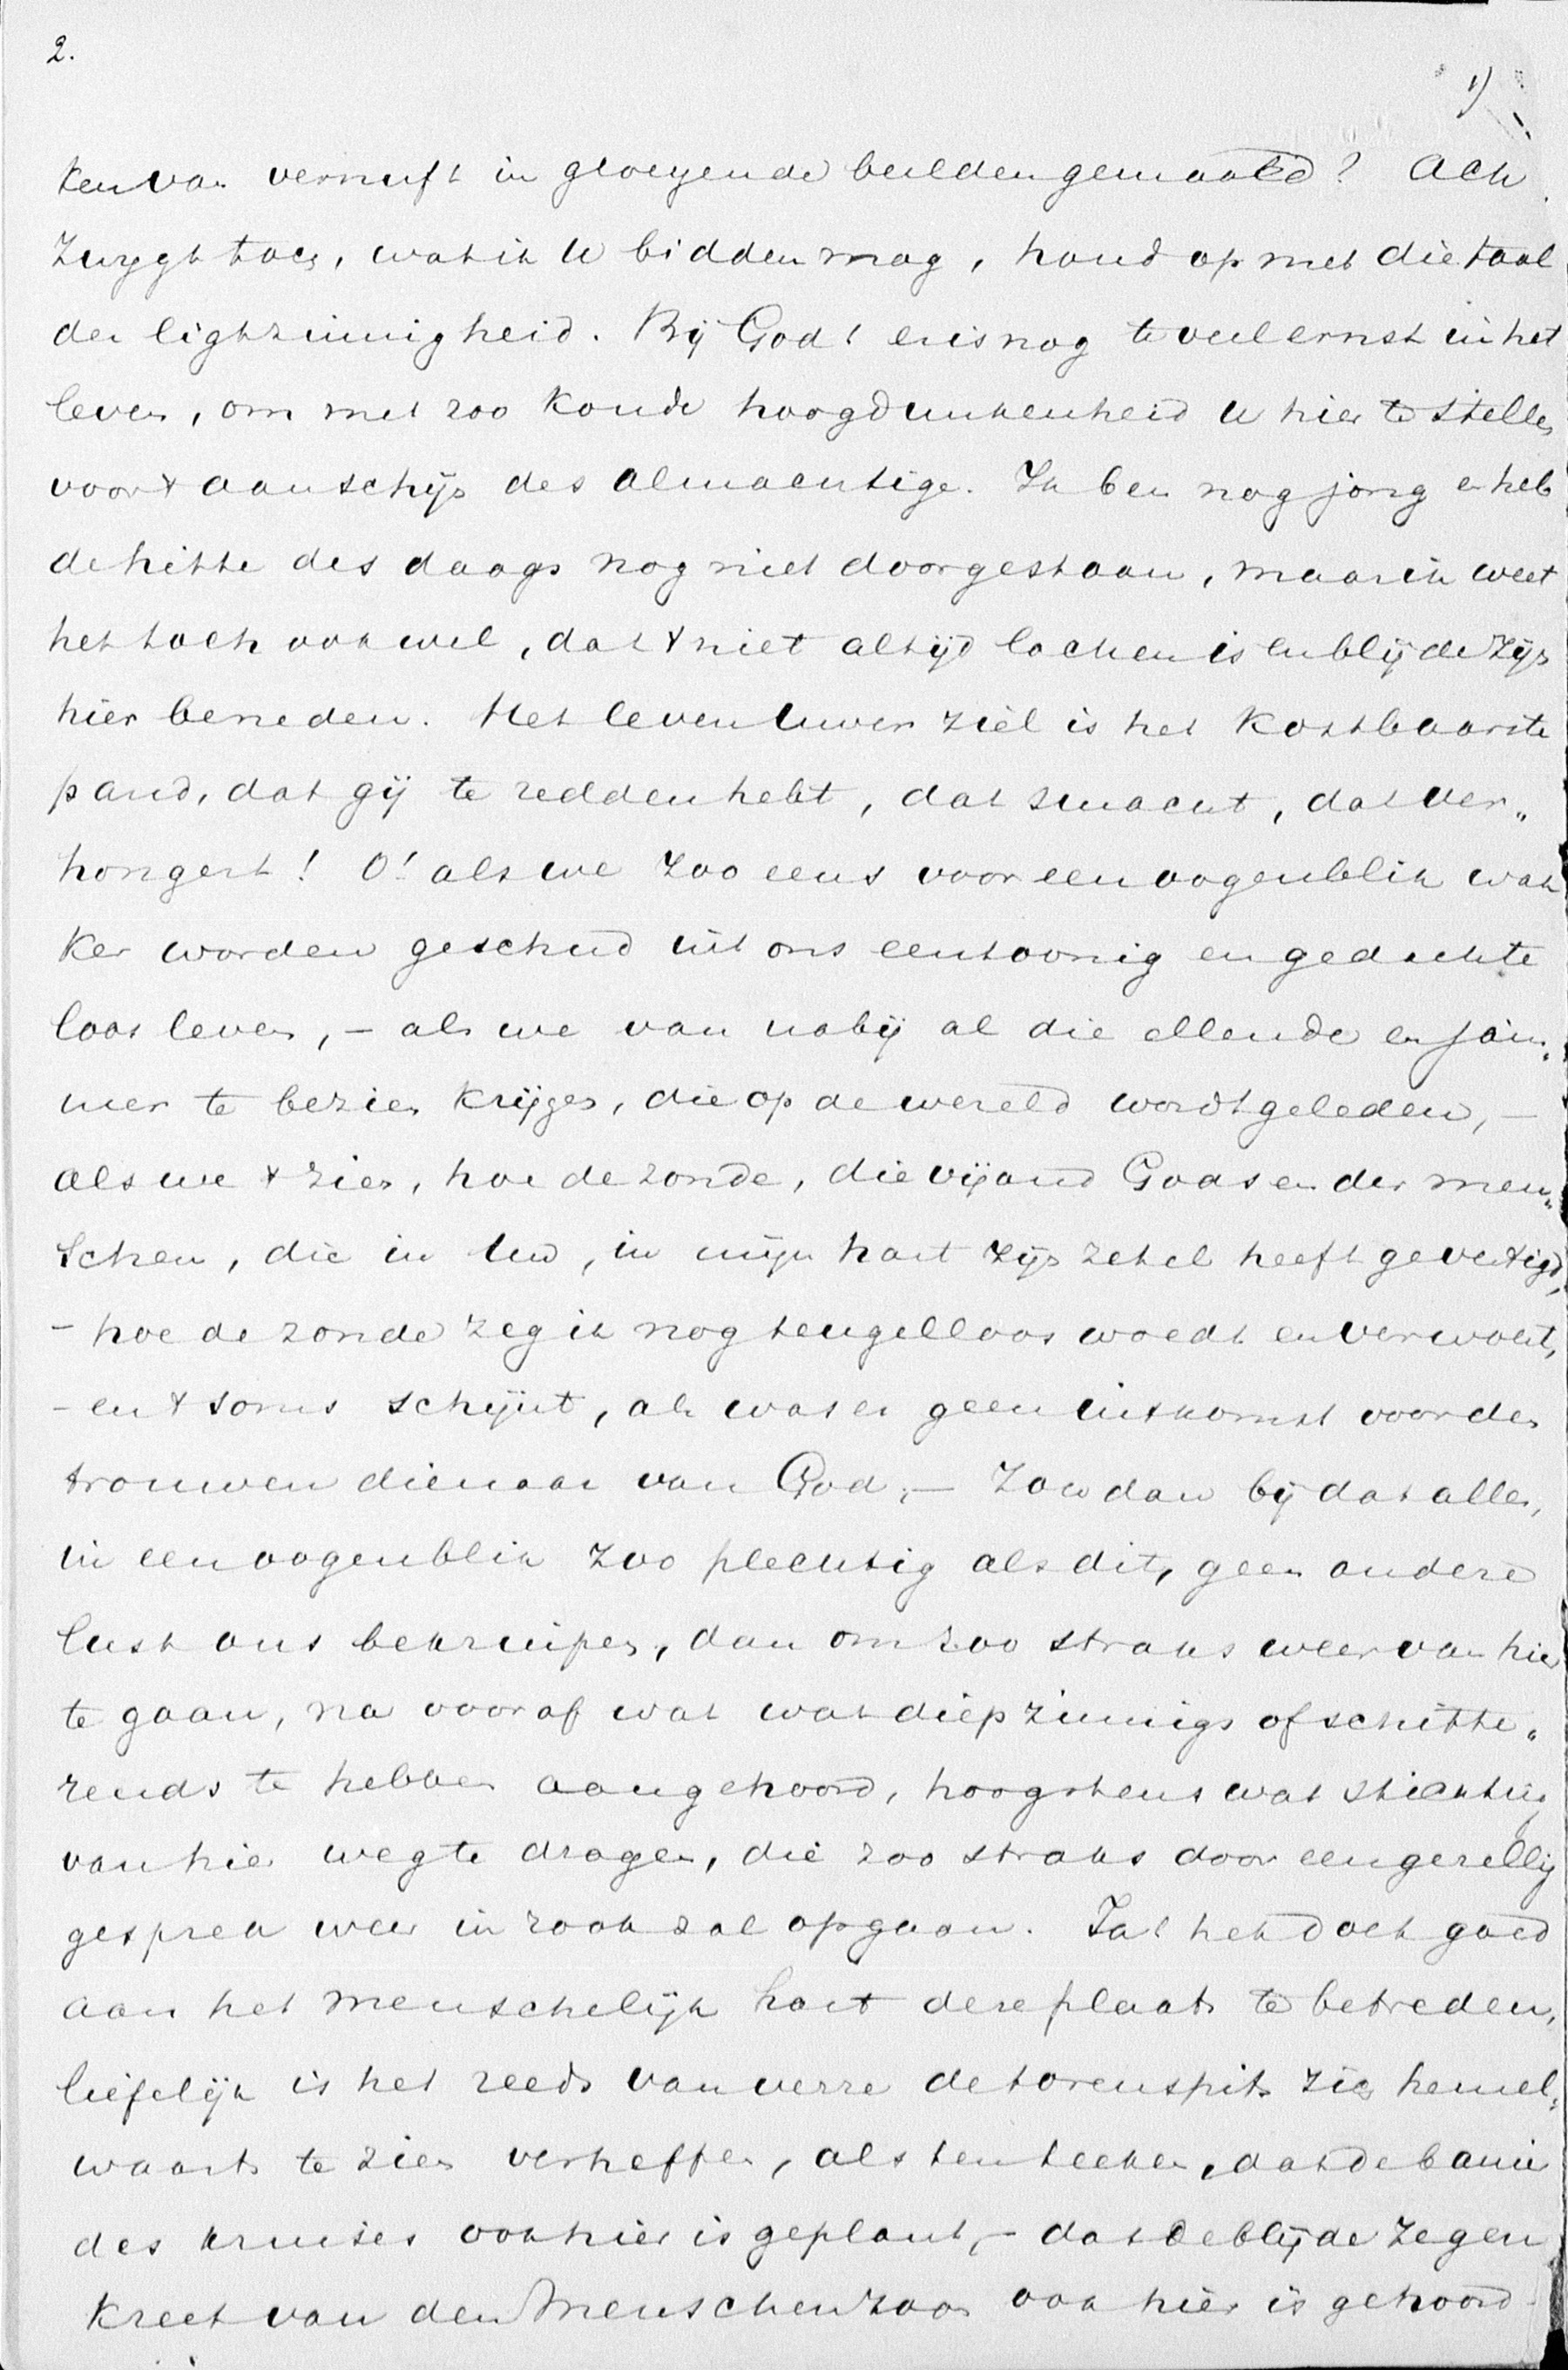 2.
1)
ken van vernuft in gloeyende beelden gemaald? Ach
zwygt toch, wat ik U bidden mag, houd op met die taal
der ligtzinnigheid. Bij God! er is nog te veel ernst in het
leven, om met zoo koude hoogdunkenheid U hier te stellen
voor 't aanschijn des Almachtige. Ik ben nog jong en heb
de hitte des daags nog niet doorgestaan, maar ik weet
het toch ook wel, dat 't niet altijd lachen is en blijde zijn
hier beneden. Het leven Uwer ziel is het kostbaarste
pand, dat gij te redden hebt, dat smacht, dat ver„
hongert! O! als we zoo eens voor een oogenblik wak
ker worden geschud uit ons eentoonig en gedachte
loos leven, – als we van nabij al die ellende en jam„
mer te bezien krijgen, die op de wereld wordt geleden, –
als we 't zien, hoe de zonde, die vijand Gods en der men„
schen, die in Uw, in mijn hart zijn zetel heeft gevestigd,
– hoe de zonde zeg ik nog teugelloos woedt en verwoest,
– en 't soms schijnt, als was er geen uitkomst voor den
trouwen dienaar van God, – zou dan bij dat alles,
in een oogenblik zoo plechtig als dit, geen andere
lust ons bekruipen, dan om zoo straks weer van hier
te gaan, na vooraf wat wat diepzinnigs of schitte„
rends te hebben aangehoord, hoogstens wat stichting
van hier weg te dragen, die zoo straks door een gezellig
gesprek weer in rook zal opgaan. Ja! het doet goed
aan het menschelijk hart deze plaats te betreden,
liefelijk is het reeds van verre de torenspits zich hemel„
waarts te zien verheffen, als ten teeken, dat de banier
des kruises ook hier is geplant, – dat de blijde zegen
kreet van den Menschenzoon ook hier is gehoord.